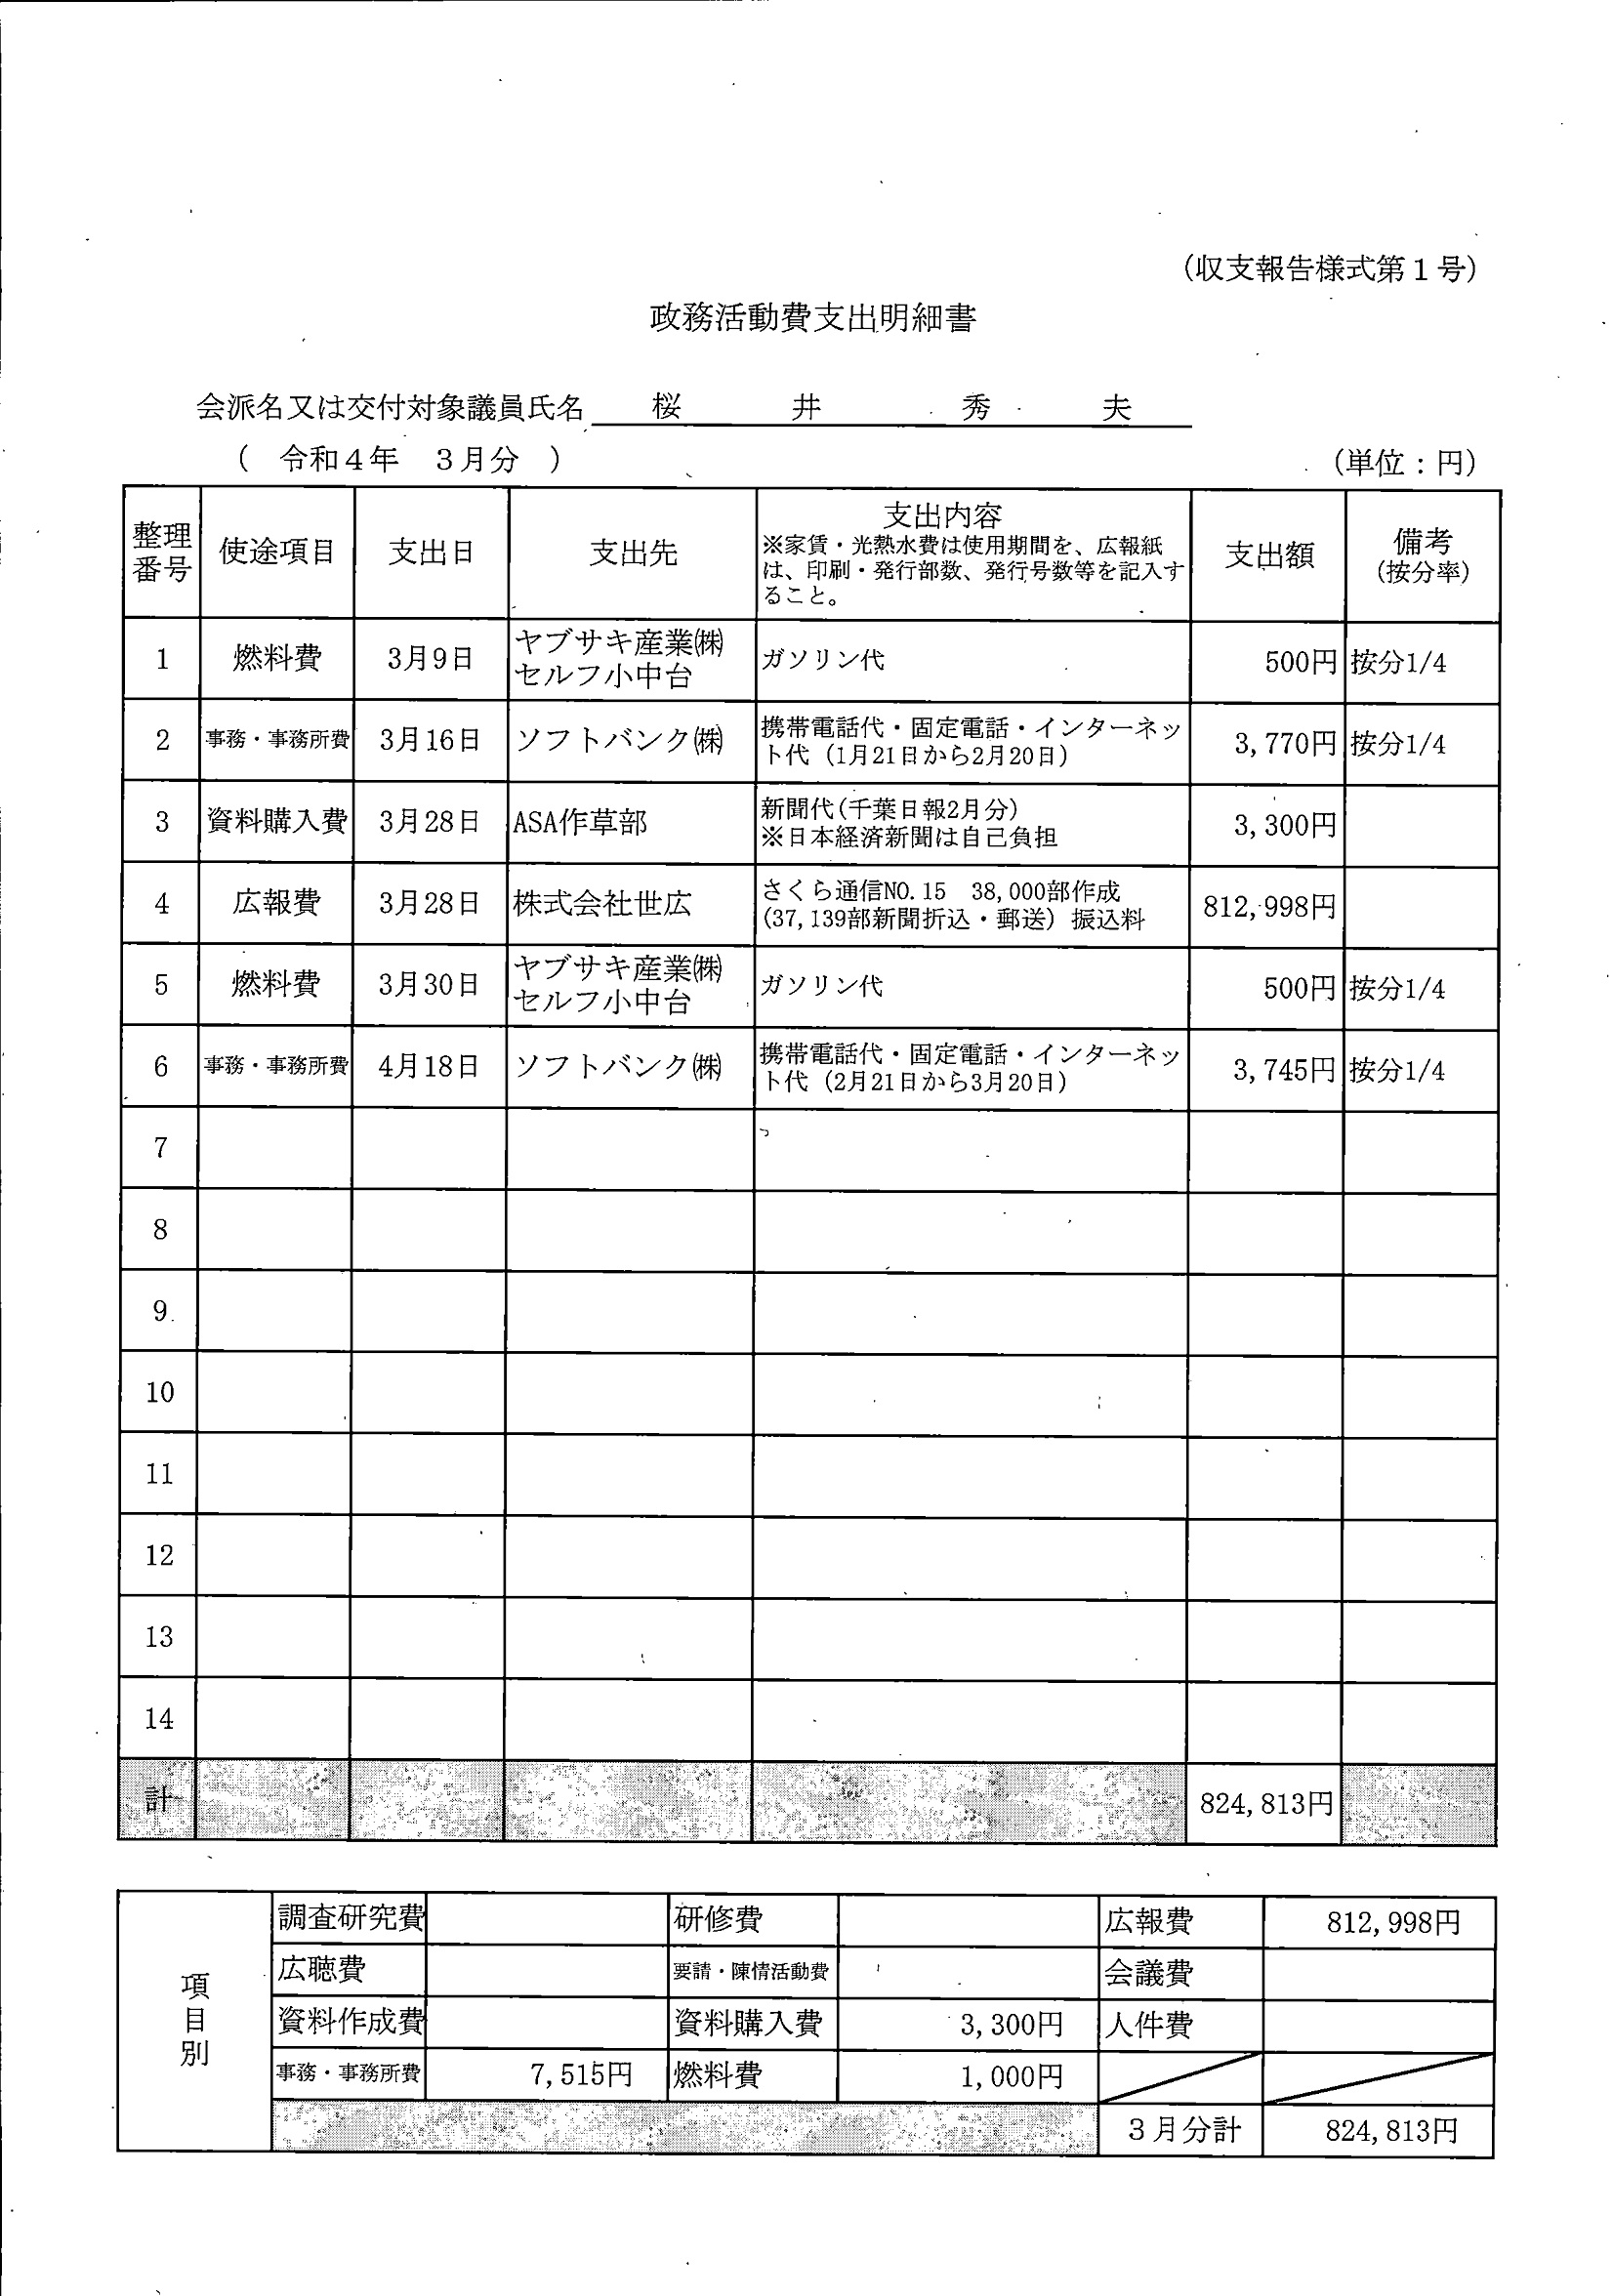 （収支報告様式第１号）
政務活動費支出明細書
会派名又は交付対象議員氏名　桜　井　秀　夫
（　令和４年　３月分　）
（単位：円）
整理番号　使途項目　支出日　支出先　支出内容　支出額　備考（按分率）
※家賃・光熱水費は使用期間を、広報紙
は、印刷・発行部数、発行号数等を記入す
ること。
1　燃料費　3月9日　ヤブサキ産業㈱ セルフ小中台　ガソリン代　500円　按分1/4
2　事務・事務所費　3月16日　ソフトバンク㈱　携帯電話代・固定電話・インターネット代（1月21日から2月20日）　3,770円　按分1/4
3　資料購入費　3月28日　ASA作草部　新聞代(千葉日報2月分) ※日本経済新聞は自己負担　3,300円
4　広報費　3月28日　株式会社世広　さくら通信NO.15　38,000部作成 (37,139部新聞折込・郵送）振込料　812,998円
5　燃料費　3月30日　ヤブサキ産業㈱ セルフ小中台　ガソリン代　500円　按分1/4
6　事務・事務所費　4月18日　ソフトバンク㈱　携帯電話代・固定電話・インターネット代（2月21日から3月20日）　3,745円　按分1/4
7
8
9
10
11
12
13
14
計　824,813円
項目別
調査研究費　研修費　広報費　812,998円
広聴費　要請・陳情活動費　会議費
資料作成費　資料購入費　3,300円　人件費
事務・事務所費　7,515円　燃料費　1,000円
３月分計　824,813円